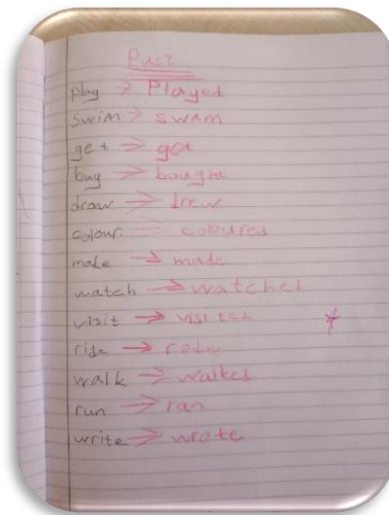 Past
play → Played
swim → swam
get → got
buy → bought
draw → drew
colour → coloured
make → made
watch → watched
visit → visited
ride → rode
walk → walked
run → ran
write → wrote